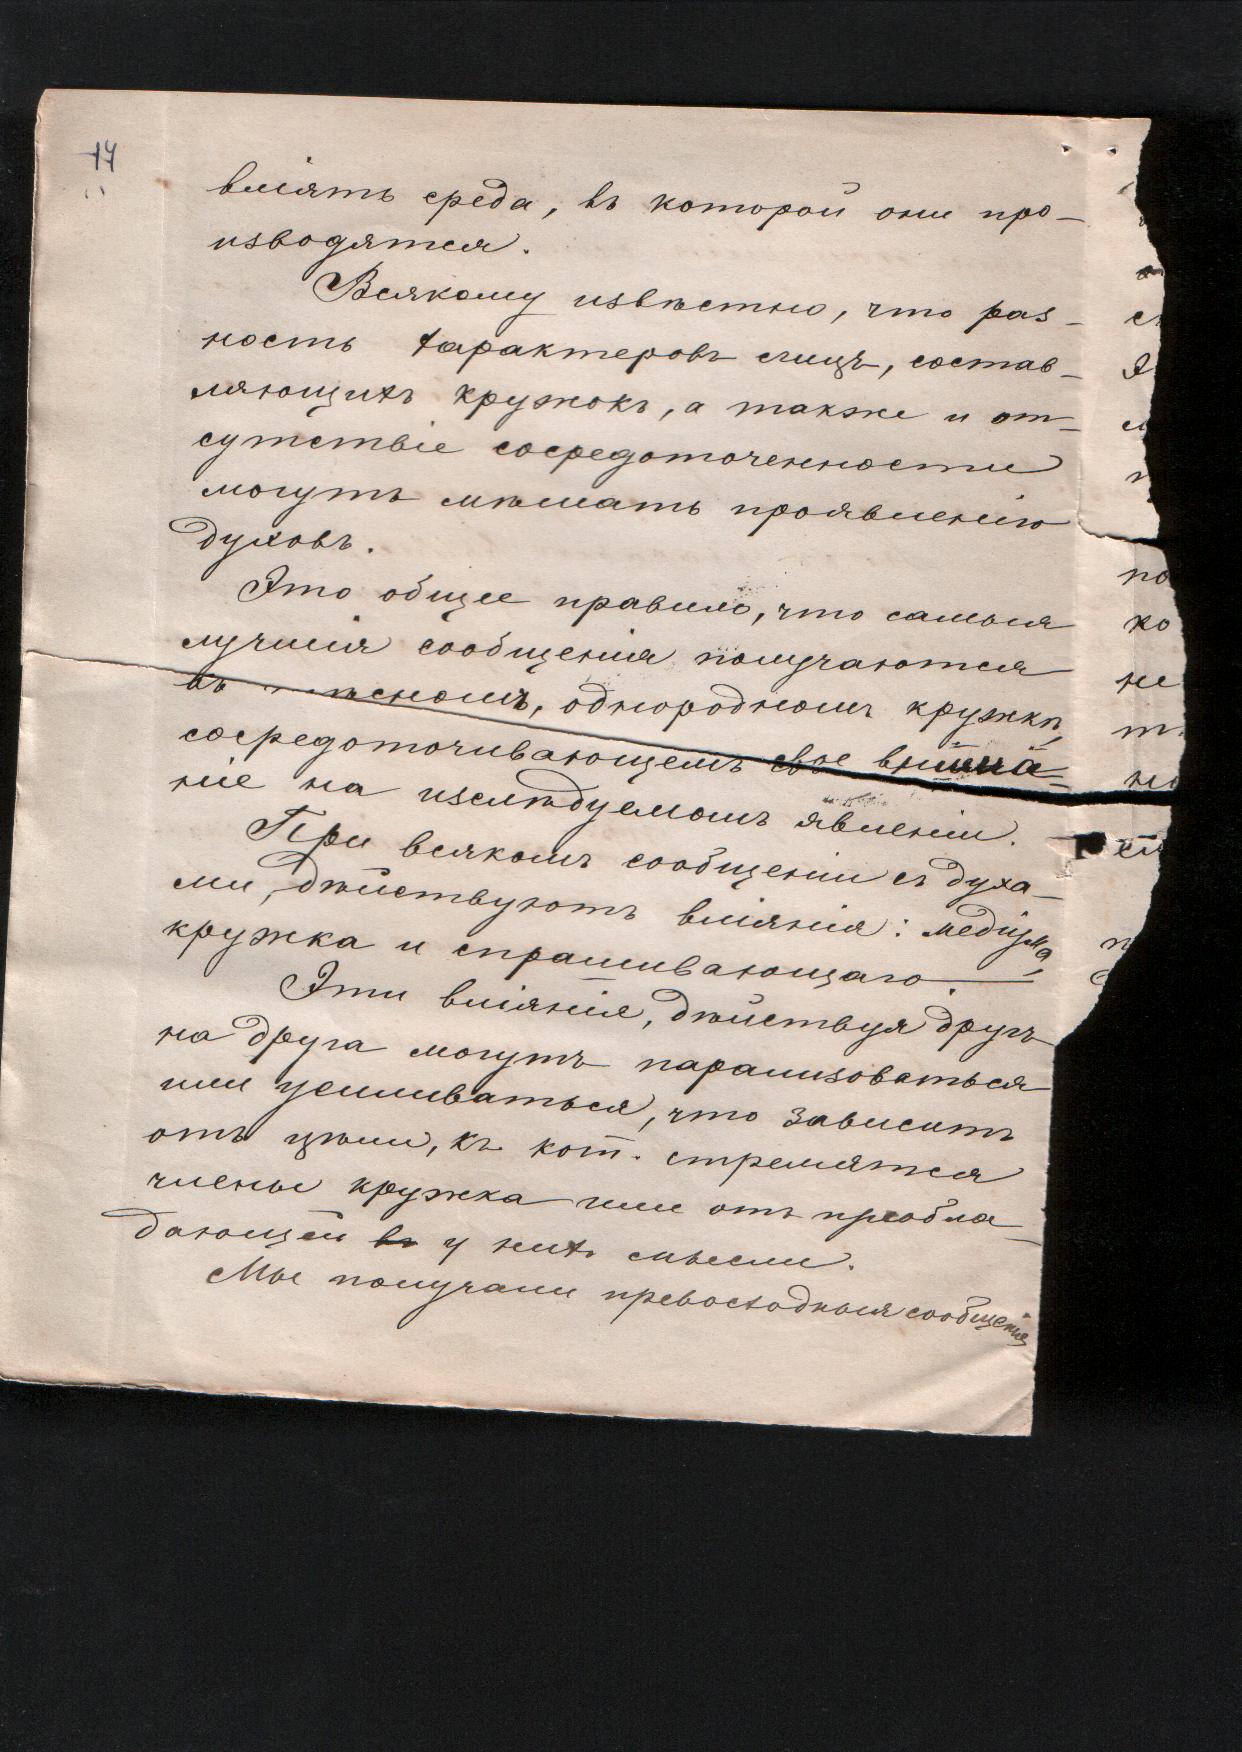 14
вліять среда, въ которой они про-
изводятся.
Всякому извѣстно, что раз-
ность характеровъ лицъ, состав-
ляющихъ кружокъ, а также и от-
сутствіе сосредоточенности
могутъ мѣшать проявленію
духовъ.
Это общее правило, что самыя
лучшія сообщенія получаются
въ однородномъ кружкѣ,
сосредоточивающемъ свое внима-
ніе на изслѣдуемомъ явленіи.
При всякомъ сообщеніи съ духа-
ми, дѣйствуютъ вліянія: медіума,
кружка и спрашивающаго.
Эти вліянія, дѣйствуя другъ
на друга могутъ парализоваться
или усиливаться, что зависитъ
отъ цѣли, къ кот. стремятся
члены кружка или отъ преобла-
дающей въ у нихъ мысли.
Мы получали превосходныя сообщенія